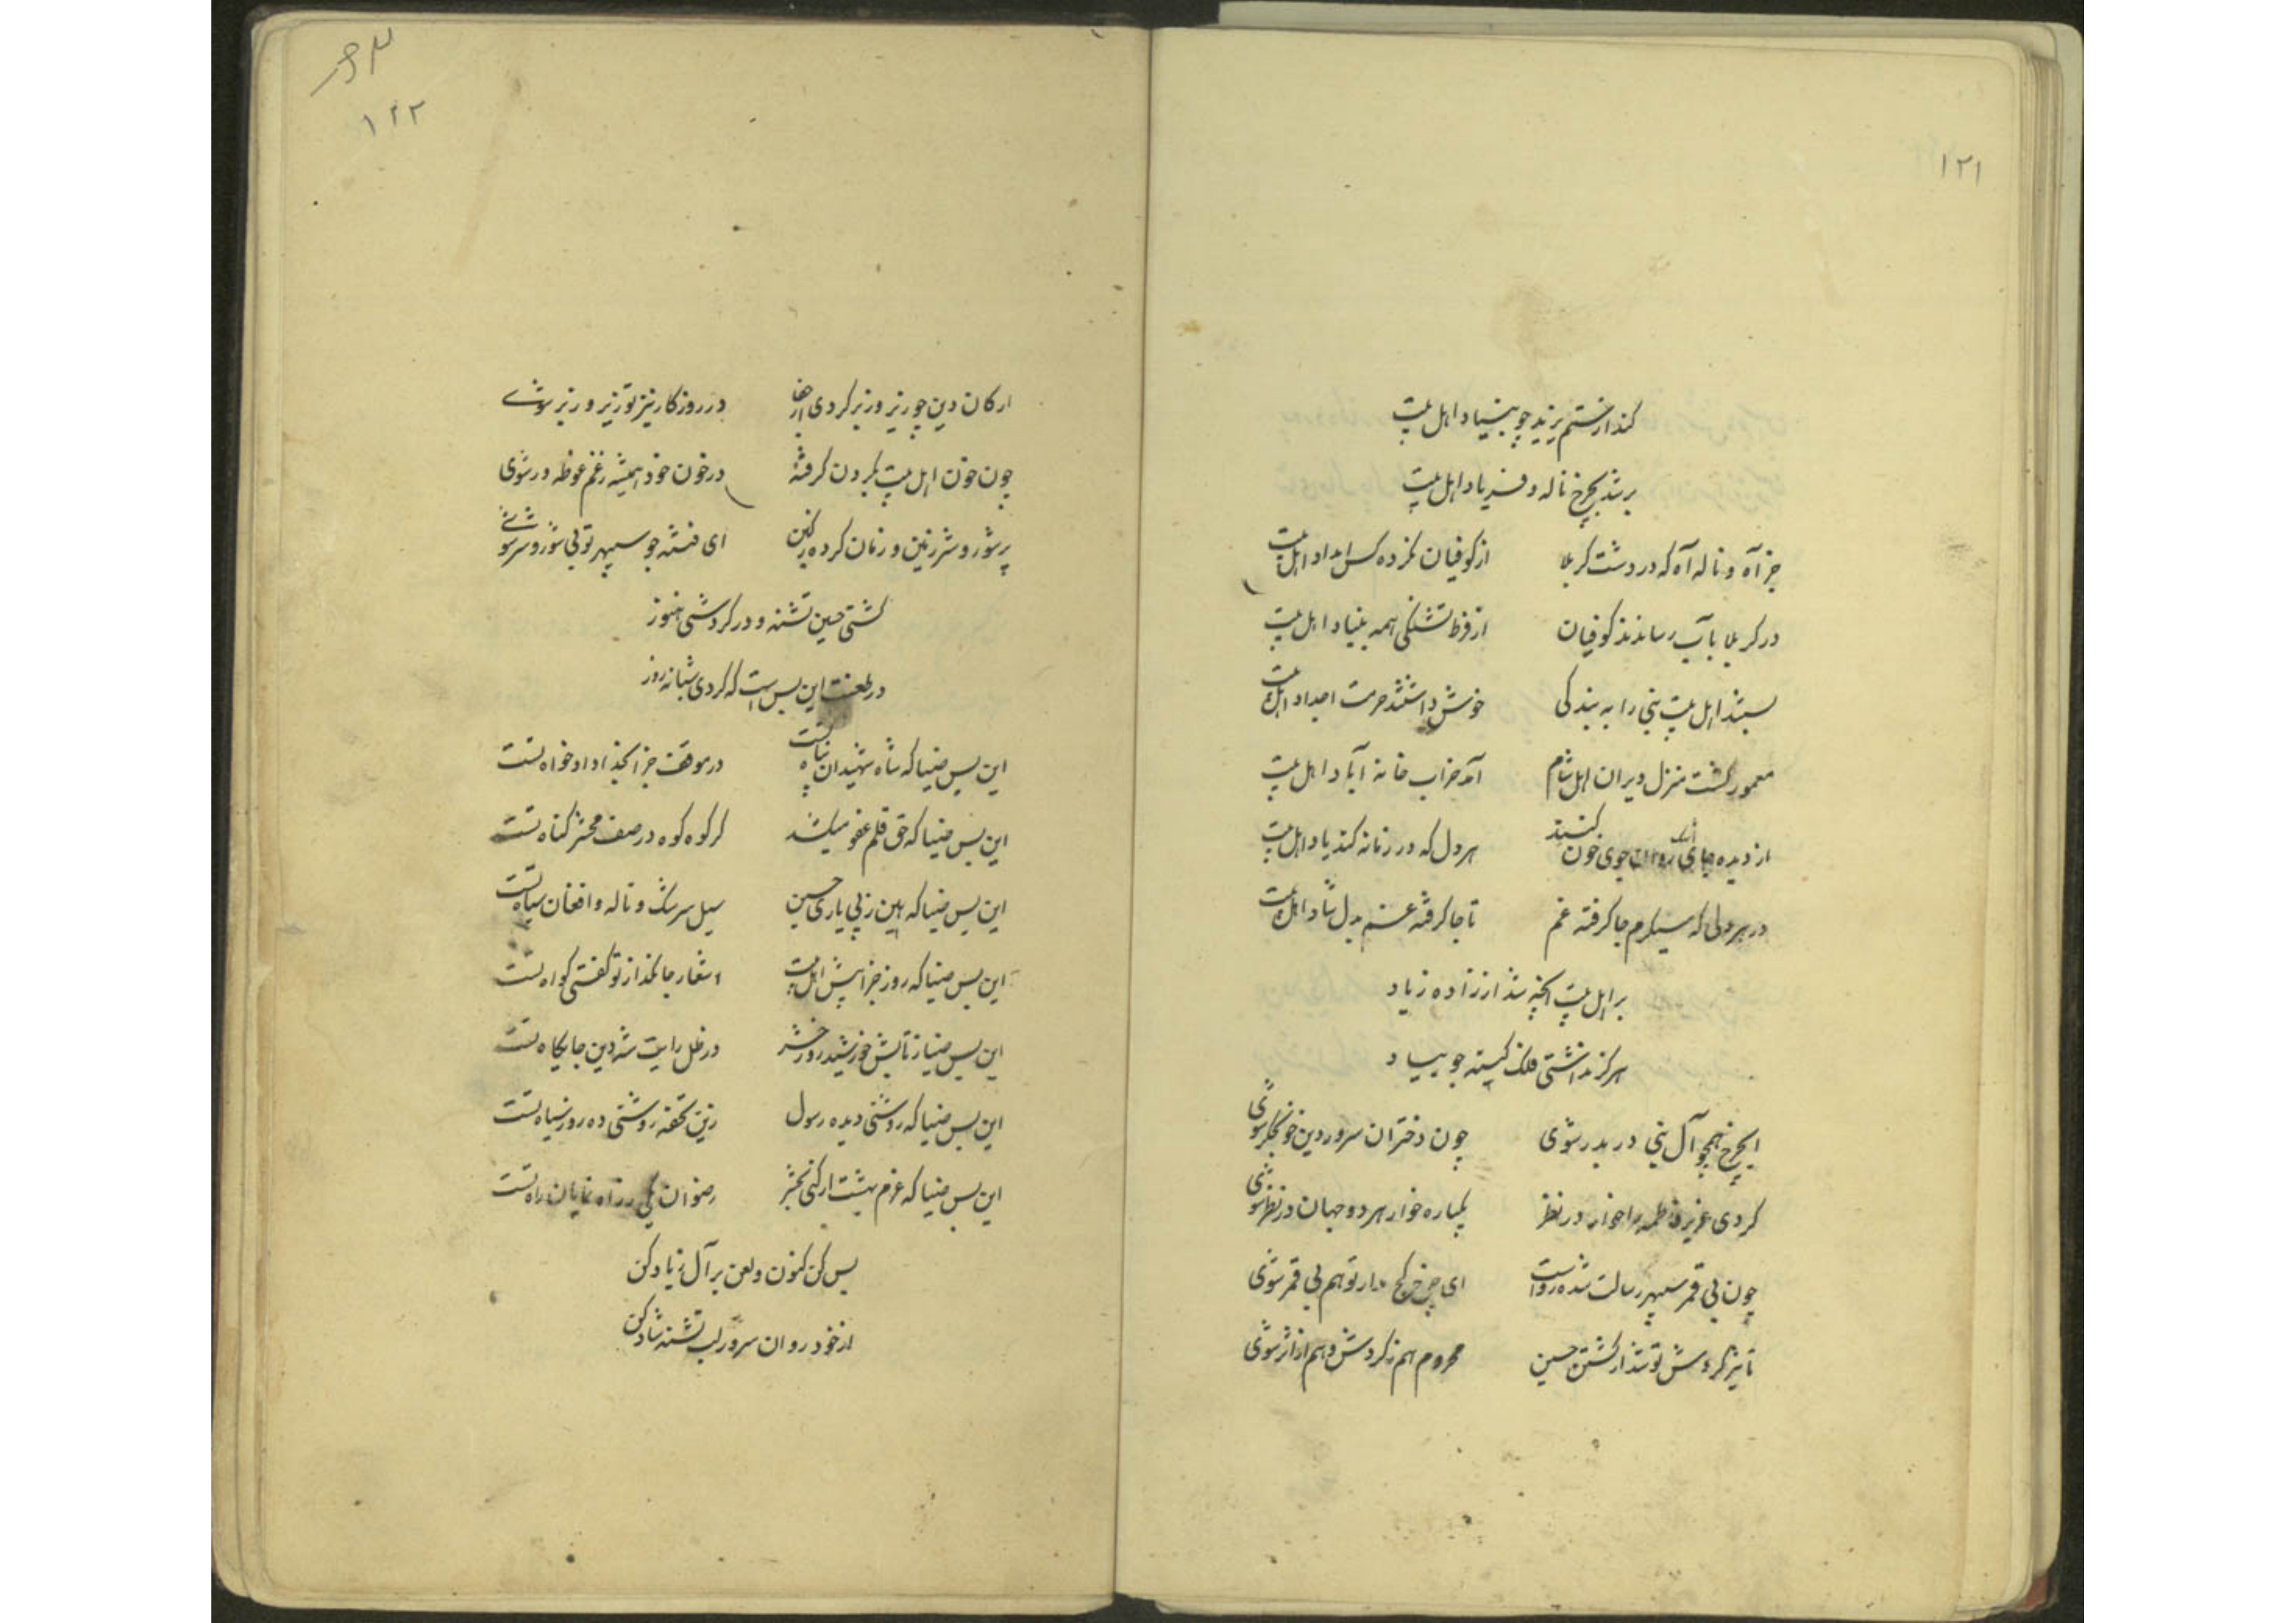 ۱۲۱
کند از ستم یزید چو بنیاد اهل بیت
بر شد بچرخ ناله و فریاد اهل بیت
جز آه و ناله آه که در دشت کربلا از کوفیان نکرده کس امداد اهل بیت
در کربلا بآب رساندند کوفیان از فرط تشنگی همه بنیاد اهل بیت
بستند اهل بیت نبی را به بندگی خوش داشتند حرمت اجداد اهل بیت
معمور گشت منزل ویران اهل شام آمد خراب خانه آباد اهل بیت
از دیده جای اشک جوی خون کنند هر دل که در زمانه کند یاد اهل بیت
در هر دلی که سنگرم جا گرفته غم تا جا گرفته غم بدل شاد اهل بیت
بر اهل بیت آنچه شد از زاده زیاد
هرگز نداشتی فلک کینه جو بیاد
ایچرخ همچو آل نبی در بدر شوی چون دختران سرور دین خونجگر شوی
کردی عزیز فاطمه را خوار در نظر یکباره خوار هر دو جهان در نظر شوی
چون بی قمر سپهر رسالت شده رواست ای چرخ کج مدار تو هم بی قمر شوی
تاثیر گردش تو شد از کشتن حسین محروم هم ز گردش و هم از اثر شوی
۱۲۲
ارکان دین چو زیر و زبر کردی از جفا در روزگار نیز تو زیر و زبر شوی
چون خون اهل بیت بگردن گرفتهٔ در خون خود همیشه ز غم غوطه ور شوی
پر شور و شر زمین و زمان کرده ز کین ای فتنه جو سپهر تو بی شور و شر شوی
کشتی حسین تشنه و در گردشی هنوز
در طعنت این بس است که کردی شبانه روز
این بس ضیا که شاه شهیدان پناه تست در موقف جزا بخدا دادخواه تست
این بس ضیا که حق قلم عفو میکشد گر کوه کوه در صف محشر گناه تست
این بس ضیا که بهین زپی یاری حسین سیل سرشک و ناله و افغان سپاه تست
این بس ضیا که روز جزا پیش اهل بیت اشعار جانگداز تو گفتی گواه تست
این بس ضیا ز تابش خورشید روز حشر در ظل رایت شه دین جایگاه تست
این بس ضیا که روشنی دیده رسول زین تحفه روشنی ده روز سیاه تست
این بس ضیا که عزم بهشت ار کنی بحشر رضوان یکی ز راه نمایان راه تست
بس کن کنون و لعن بر آل زیاد کن
از خود روان سرور لب تشنه شاد کن